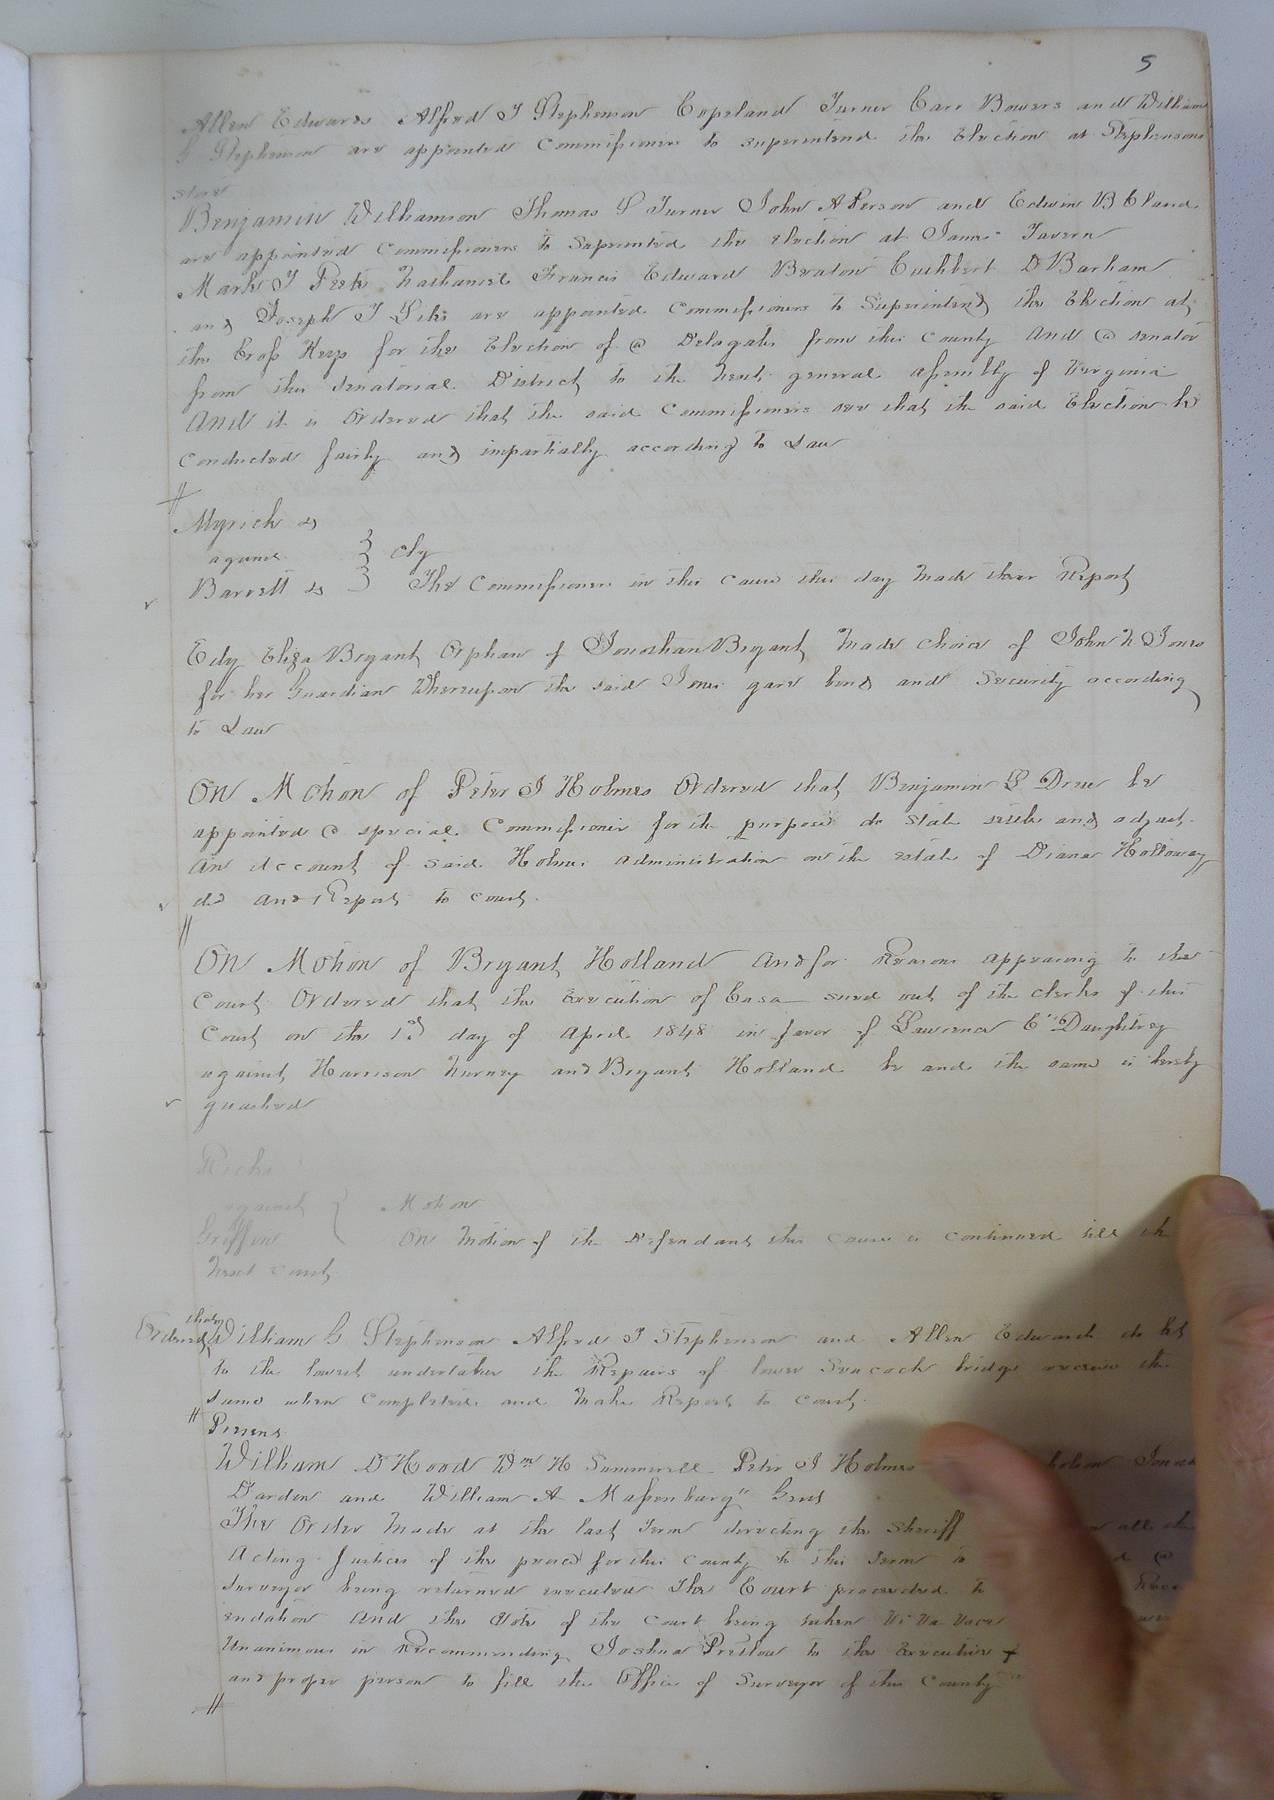 5
Allen Edwards Alfred J Stephenson Copeland Turner Carr Bowers and William
G Stephenson are appointed Commissioners to superintend the Election at Stephensons
store
Benjamin Williamson Thomas L Turner John A Person and Edwin B Claud
are appointed Commissioners to Superintend the election at James Tavern
Mark J Peete Nathaniel Francis Edward Beaton Cuthbert D Barham
and Joseph J are appointed Commissioners to Superintend the Election at
the Cross Keys for the Election of a Delegate from this County and a senator
from this Senatorial District to the next general assembly of Virginia
And it is Ordered that the said Commissioners see that the said Election be
conducted fairly and impartially according to Law
Myrick &
against
} Chy
Barrett & The Commissioners in this cause this day made their Report
Edy Eliza Bryant Orphan of Jonathan Bryant made choice of John N Jones
for her Guardian Whereupon the said Jones gave bond and Security according
to Law
On Motion of Peter J Holmes Ordered that Benjamin L Drew be
appointed a special Commissioner for the purpose do state settle and adjust
an account of said Holmes administration on the estate of Diana Holloway
dcd and Report to court
On Motion of Bryant Holland and for Reasons appearing to the
Court Ordered that the Execution of Casa sued out of the clerks of this
Court on the 1st day of April 1848 in favor of Lawrence E Daughtrey
against Harrison Nurney and Bryant Holland be and the same is hereby
quashed
Ricks
against } Motion
Griffin On Motion of the Defendant this cause is continued till the
next court
that
Ordered William G Stephenson Alfred J Stephenson and Allen Edwards do let
to the lowest undertaker the Repairs of lower Seacock bridge receive the
same when Completed and make Report to court
Present
William D Hood Wm H Summerell Peter J Holmes
Darden and William A Massenburg Gent
The Order made at the last Term directing the Sheriff all the
Acting Justices of the peace for this County to this Term to a
surveyor being returned executed The Court proceeded to
endation And the Vote of the Court being taken Vi Va Voce
Unanimous in Recommending Joshua Pretlow to the Executive
and proper person to fill the Office of Surveyor of this County